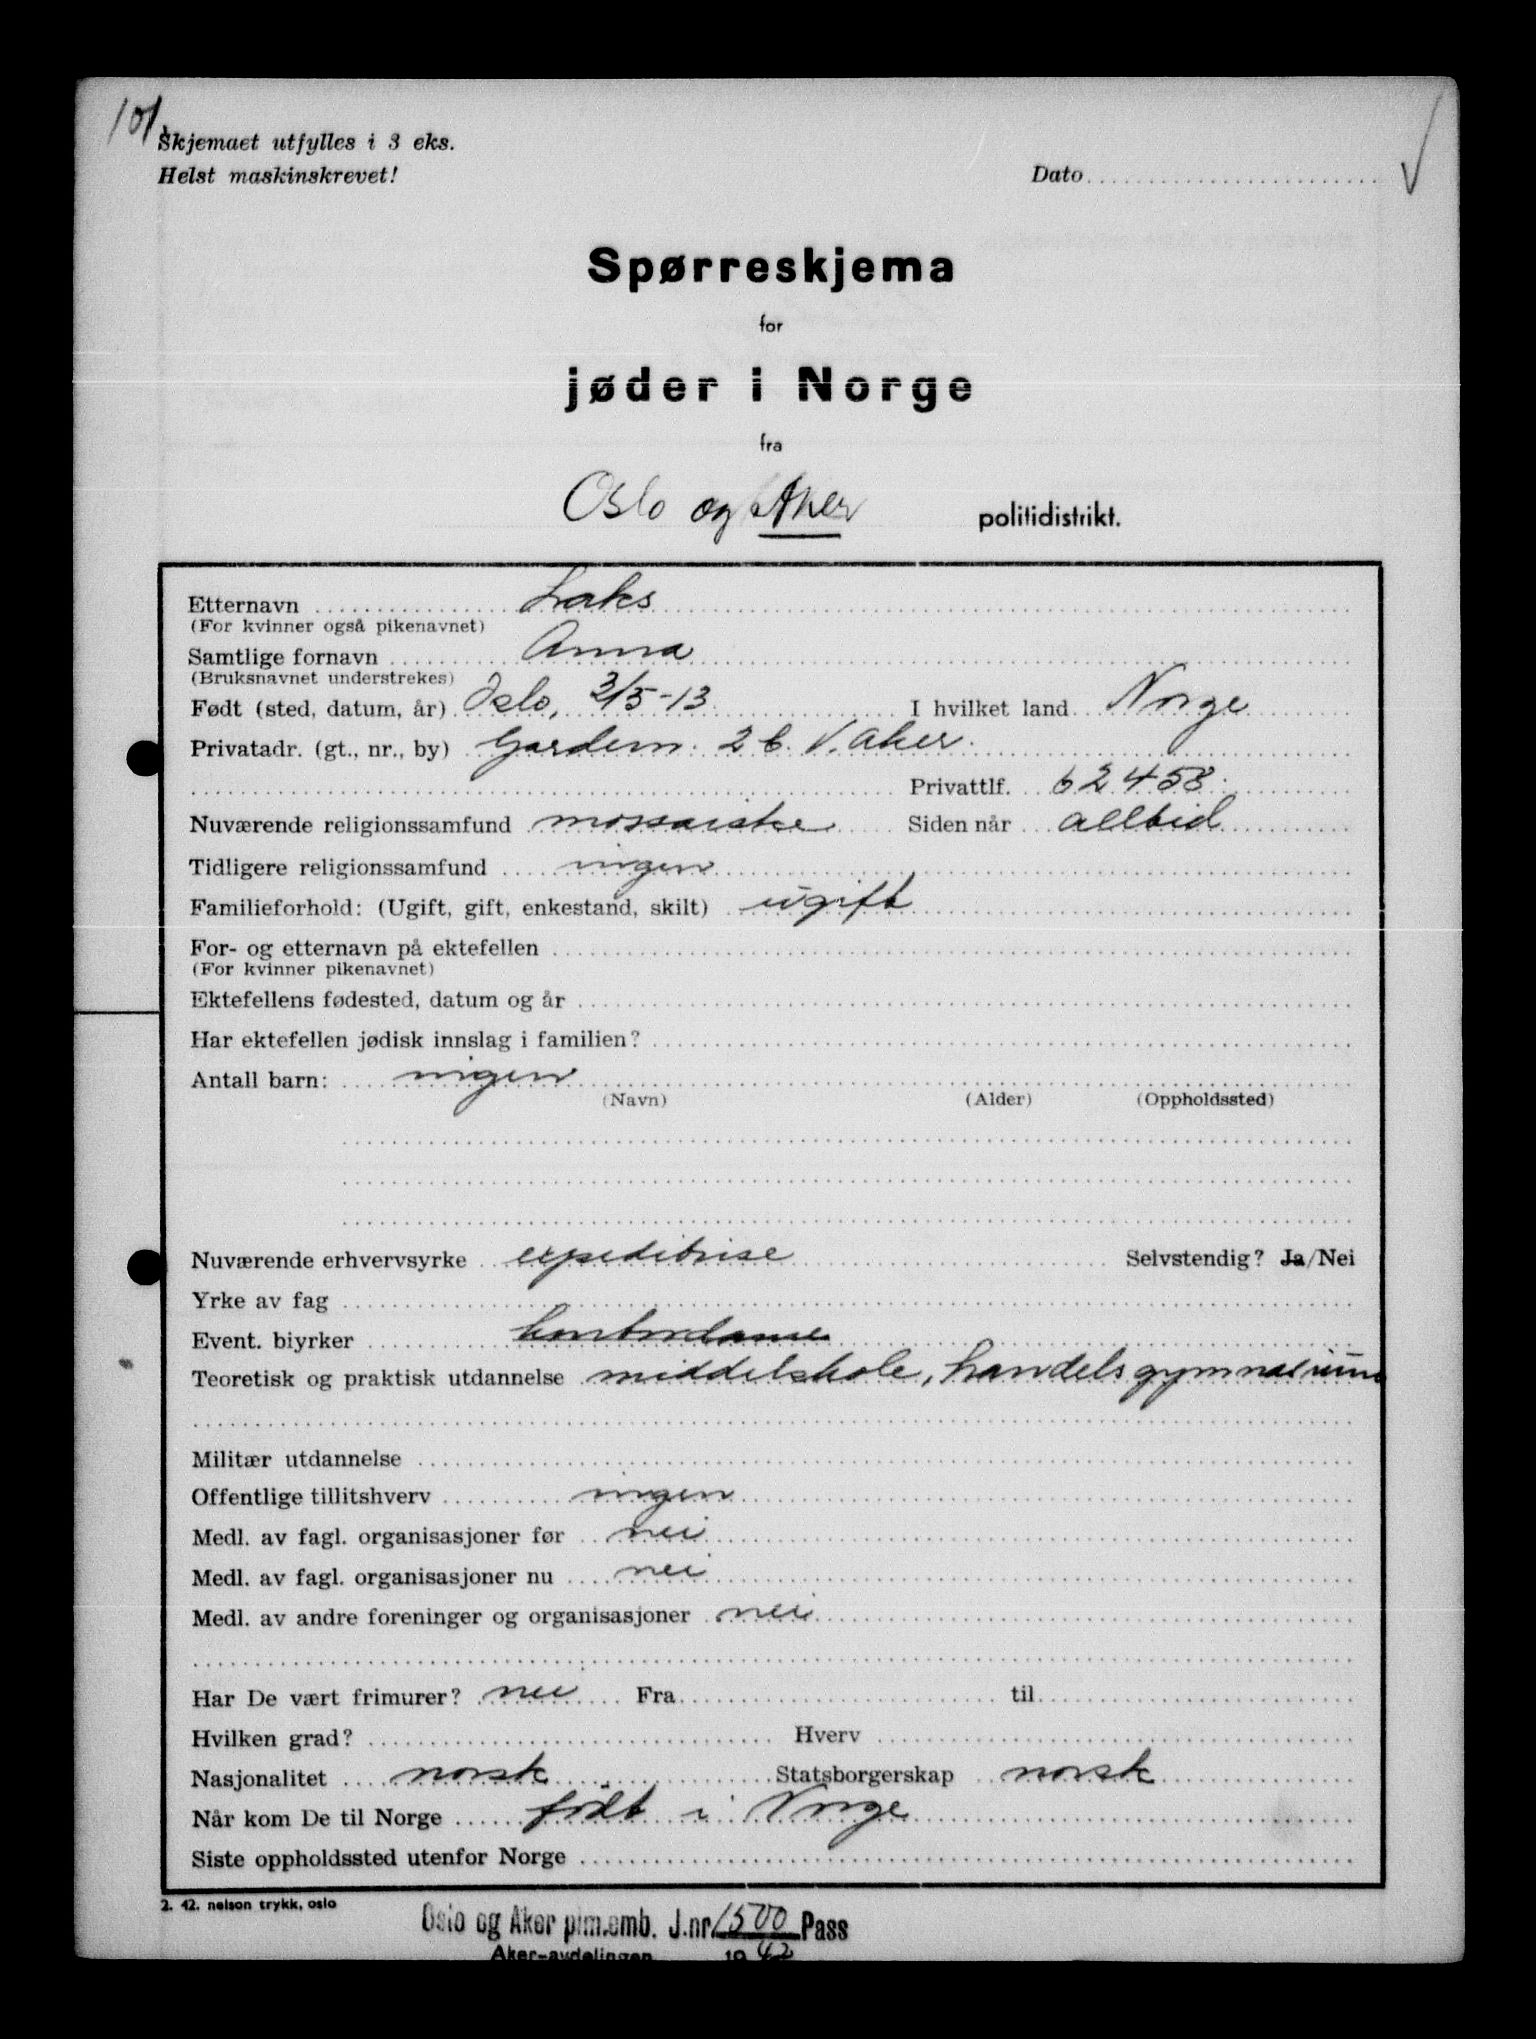 101.
Skjemaet utfylles i 3 eks.
Helst maskinskrevet!
Dato
Spørreskjema
for
jøder i Norge
fra
Oslo og Aker politidistrikt.
Etternavn Laks
(For kvinner også pikenavnet)
Samtlige fornavn Anna
(Bruksnavnet understrekes)
Født (sted, datum, år) Oslo, 3/5-13 I hvilket land Norge
Privatadr. (gt., nr., by) Gardem. 2 b. V. Aker.
Privattlf. 62458
Nuværende religionssamfund mossaiske Siden når alltid
Tidligere religionssamfund ingen
Familieforhold: (Ugift, gift, enkestand, skilt) ugift
For- og etternavn på ektefellen
(For kvinner pikenavnet)
Ektefellens fødested, datum og år
Har ektefellen jødisk innslag i familien?
Antall barn: ingen
(Navn) (Alder) (Oppholdssted)
Nuværende erhvervsyrke expeditrise Selvstendig? Ja/Nei
Yrke av fag
Event. biyrker kontordame
Teoretisk og praktisk utdannelse middelskole, handelsgymnasium
Militær utdannelse
Offentlige tillitshverv ingen
Medl. av fagl. organisasjoner før nei
Medl. av fagl. organisasjoner nu nei
Medl. av andre foreninger og organisasjoner nei
Har De vært frimurer? nei Fra til
Hvilken grad? Hverv
Nasjonalitet norsk Statsborgerskap norsk
Når kom De til Norge født i Norge
Siste oppholdssted utenfor Norge
2. 42. nelson trykk, oslo
Oslo og Aker p!m.emb. J.nr. 1500 Pass
Aker-avdelingen 1942